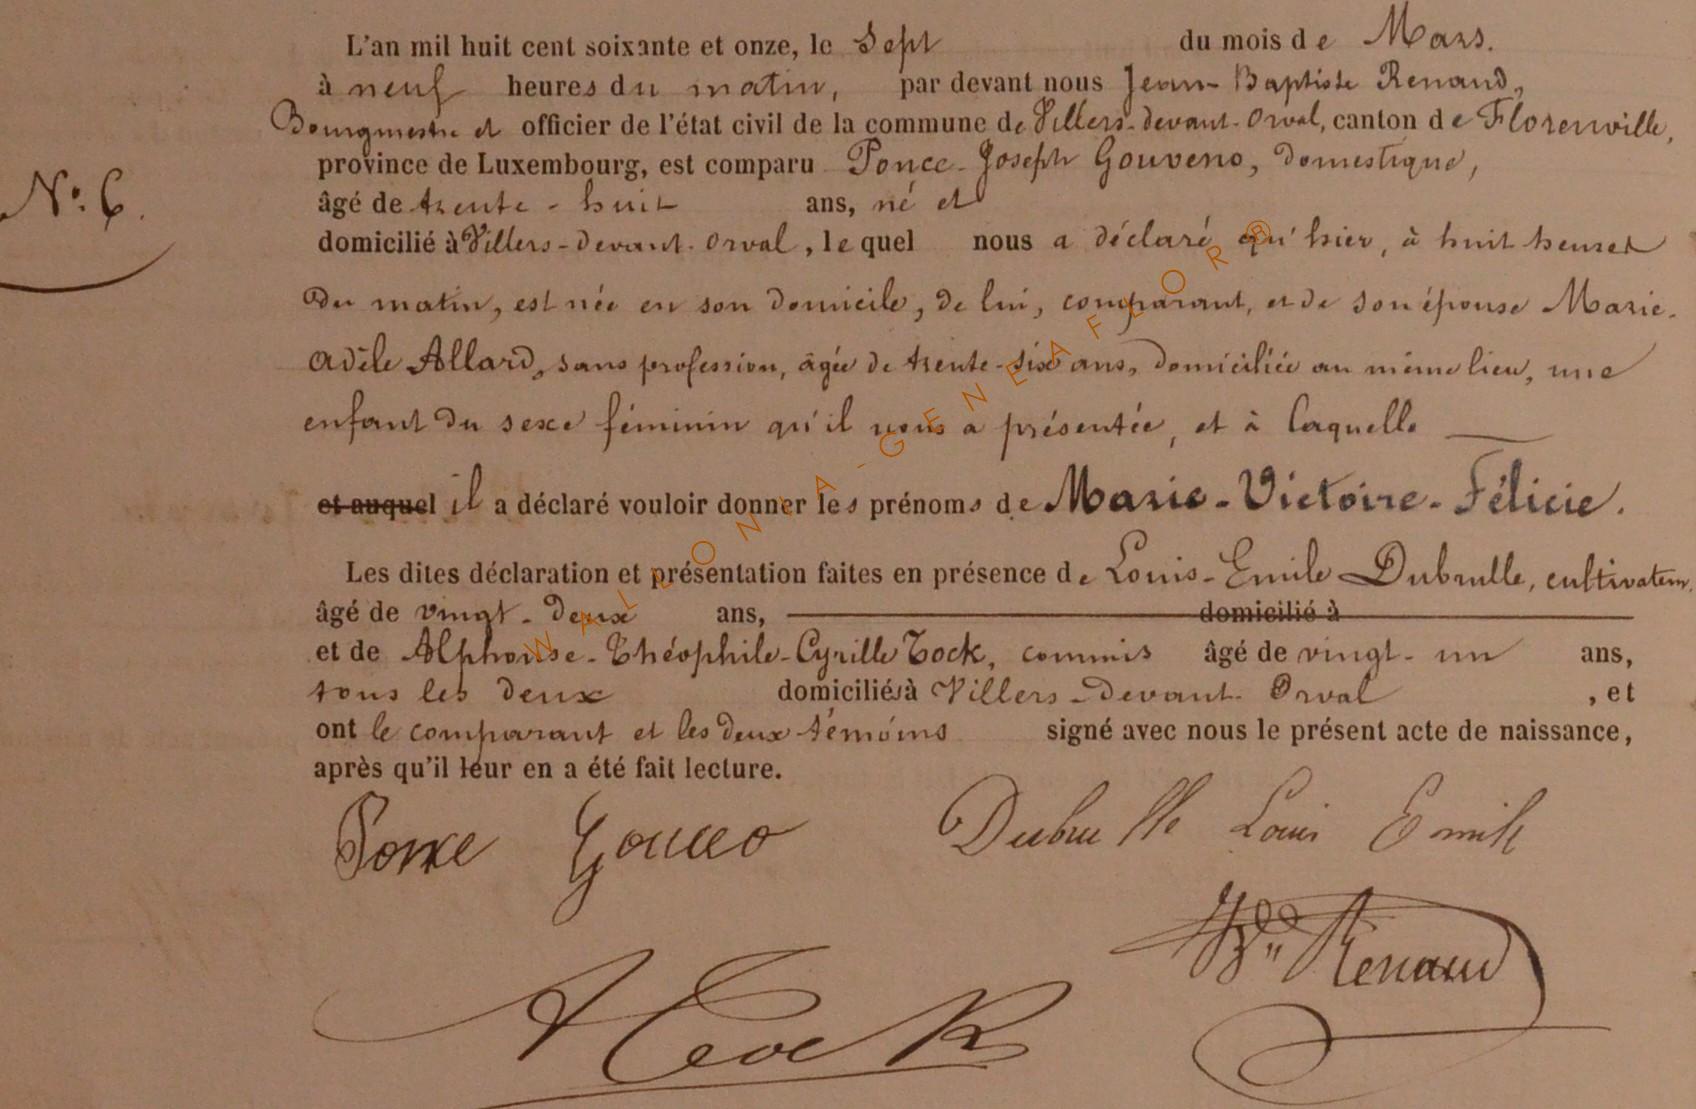 L'an mil huit cent soixante et onze, le Sept du mois de Mars.
à neuf heures du matin, par devant nous Jean-Baptiste Renaud,
Bourgmestre et officier de l'état civil de la commune de Villers-devant-Orval, canton de Florenville,
province de Luxembourg, est comparu Ponce-Joseph Gouveno, domestique,
N°. 6.
âgé de trente-huit ans, né et
domicilié à Villers-devant-Orval, lequel nous a déclaré qu'hier, à huit heures
du matin, est née en son domicile, de lui, comparant, et de son épouse Marie-
Adèle Allard, sans profession, âgée de trente-six ans, domiciliée au même lieu, une
enfant du sexe féminin qu'il nous a présentée, et à laquelle
et auquel il a déclaré vouloir donner les prénoms de Marie-Victoire-Félicie.
Les dites déclaration et présentation faites en présence de Louis-Emile Dubrulle, cultivateur,
âgé de vingt-deux ans, domicilié à
et de Alphonse-Théophile-Cyrille Tock, commis âgé de vingt-un ans,
tous les deux domiciliés à Villers-devant-Orval, et
ont le comparant et les deux témoins signé avec nous le présent acte de naissance,
après qu'il leur en a été fait lecture.
Ponce Dubrulle Louis Emile
Renaud
A Tock
WALLONIA-GENEAFLOR®